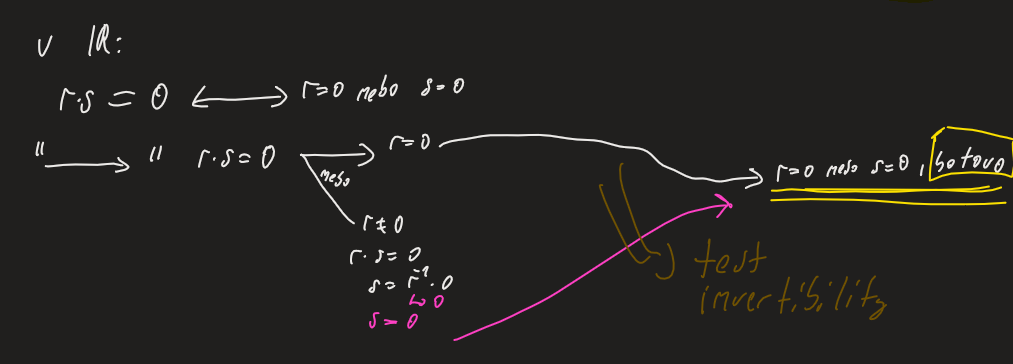 v ℝ:
r·s = 0 ⟷ r=0 nebo s=0
"⟶" r·s=0 → r=0 → r=0 nebo s=0, hotovo
nebo
r≠0
r·s=0
s=r⁻¹·0
↳ 0
s=0
test
invertibility